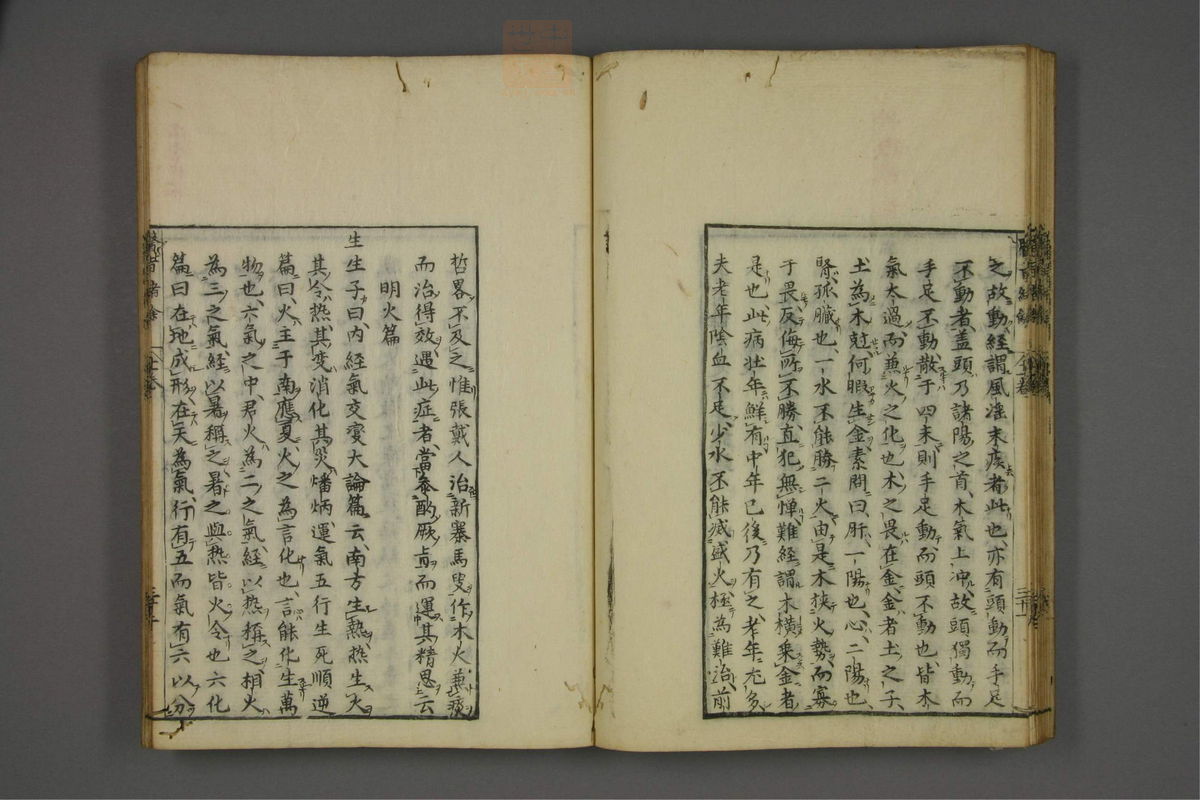 之故動經謂風淫末疾者此也亦有頭動而手足
不動者蓋頭乃諸陽之首木氣上冲故頭獨動而
手足不動散于四末則手足動而頭不動也皆木
氣太過而兼火之化也木之畏在金金者土之子
土為木尅何暇生金素問曰肝一陽也心二陽也
腎孤臟也一水不能勝二火由是木挾火勢而寡
于畏反侮所不勝直犯無憚難經謂木橫乘金者
是也此病壯年鮮有中年已後乃有之老年尤多
夫老年陰血不足少水不能滅盛火極為難治前
哲畧不及之惟張戴人治新寨馬叟作木火兼痰
而治得效遇此症者當參酌厥旨而運其精思云
明火篇
生生子曰內經氣交變大論篇云南方生熱熱生火
其令熱其変消化其災燔焫運氣五行生死順逆
篇曰火主于南應夏火之為言化也言能化生萬
物也六氣之中君火為二之氣經以熱稱之相火
為三之氣經以暑稱之暑之與熱皆火令也六化
篇曰在地成形在天為氣行有五而氣有六以分